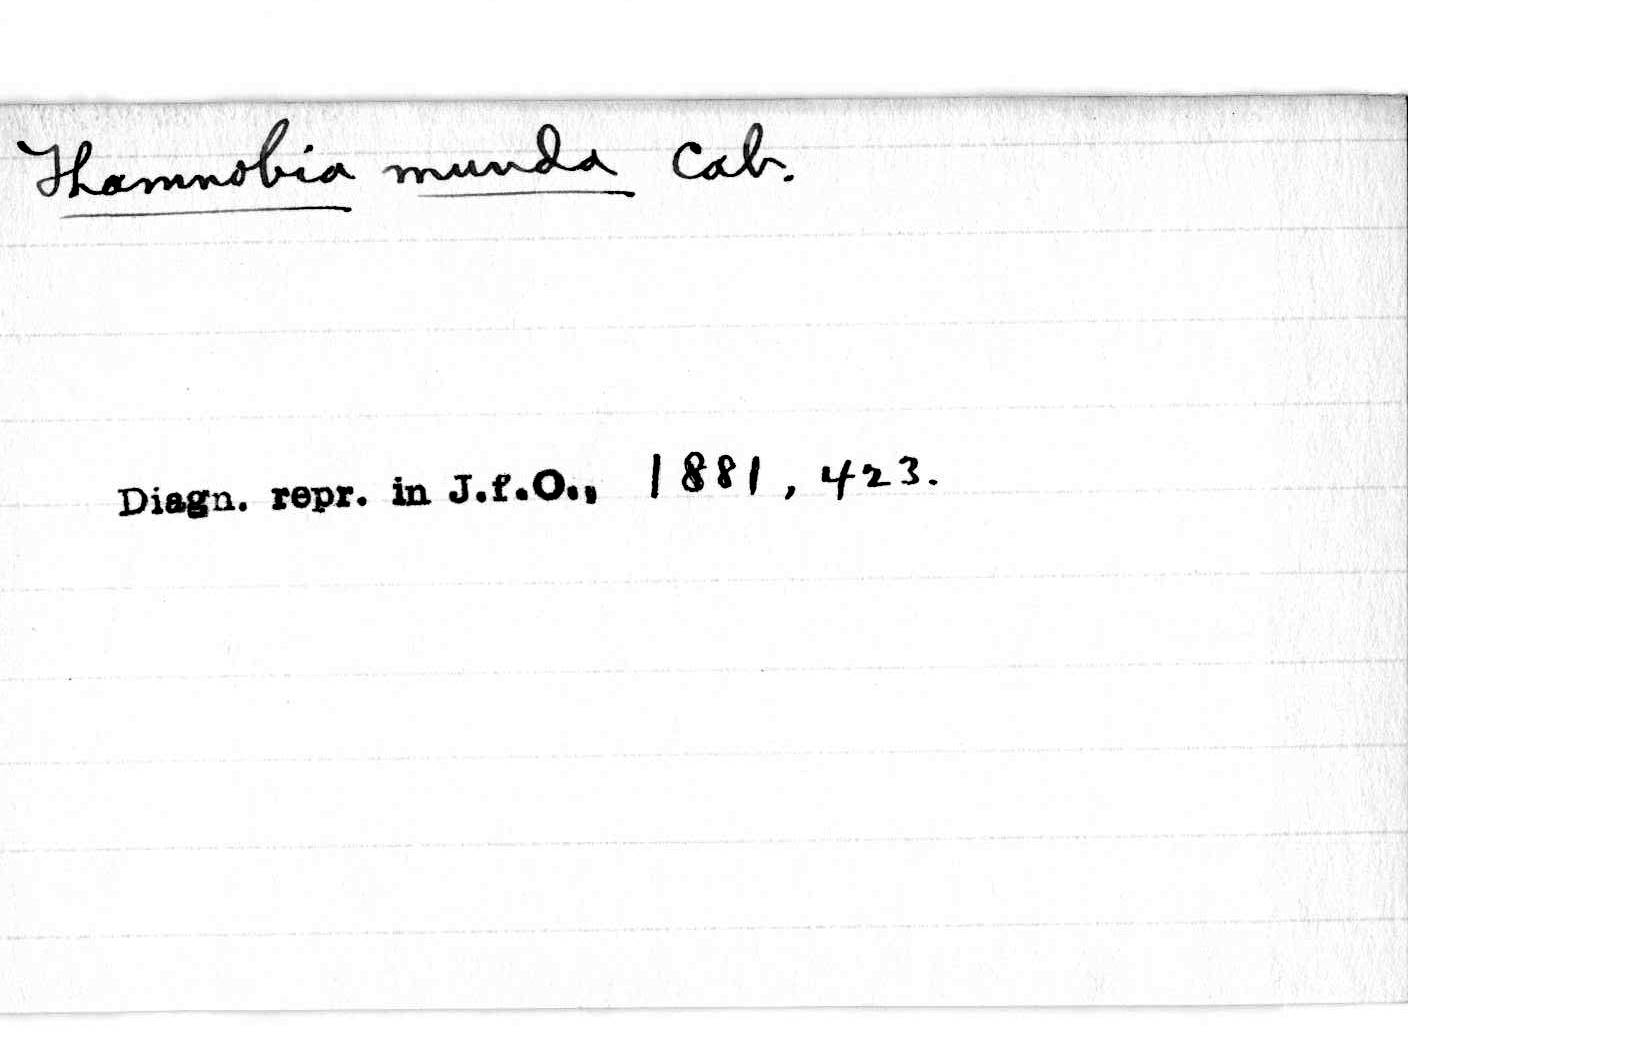 Thamnobia munda Cab.
Diagn. repr. in J.f.O., 1881, 423.